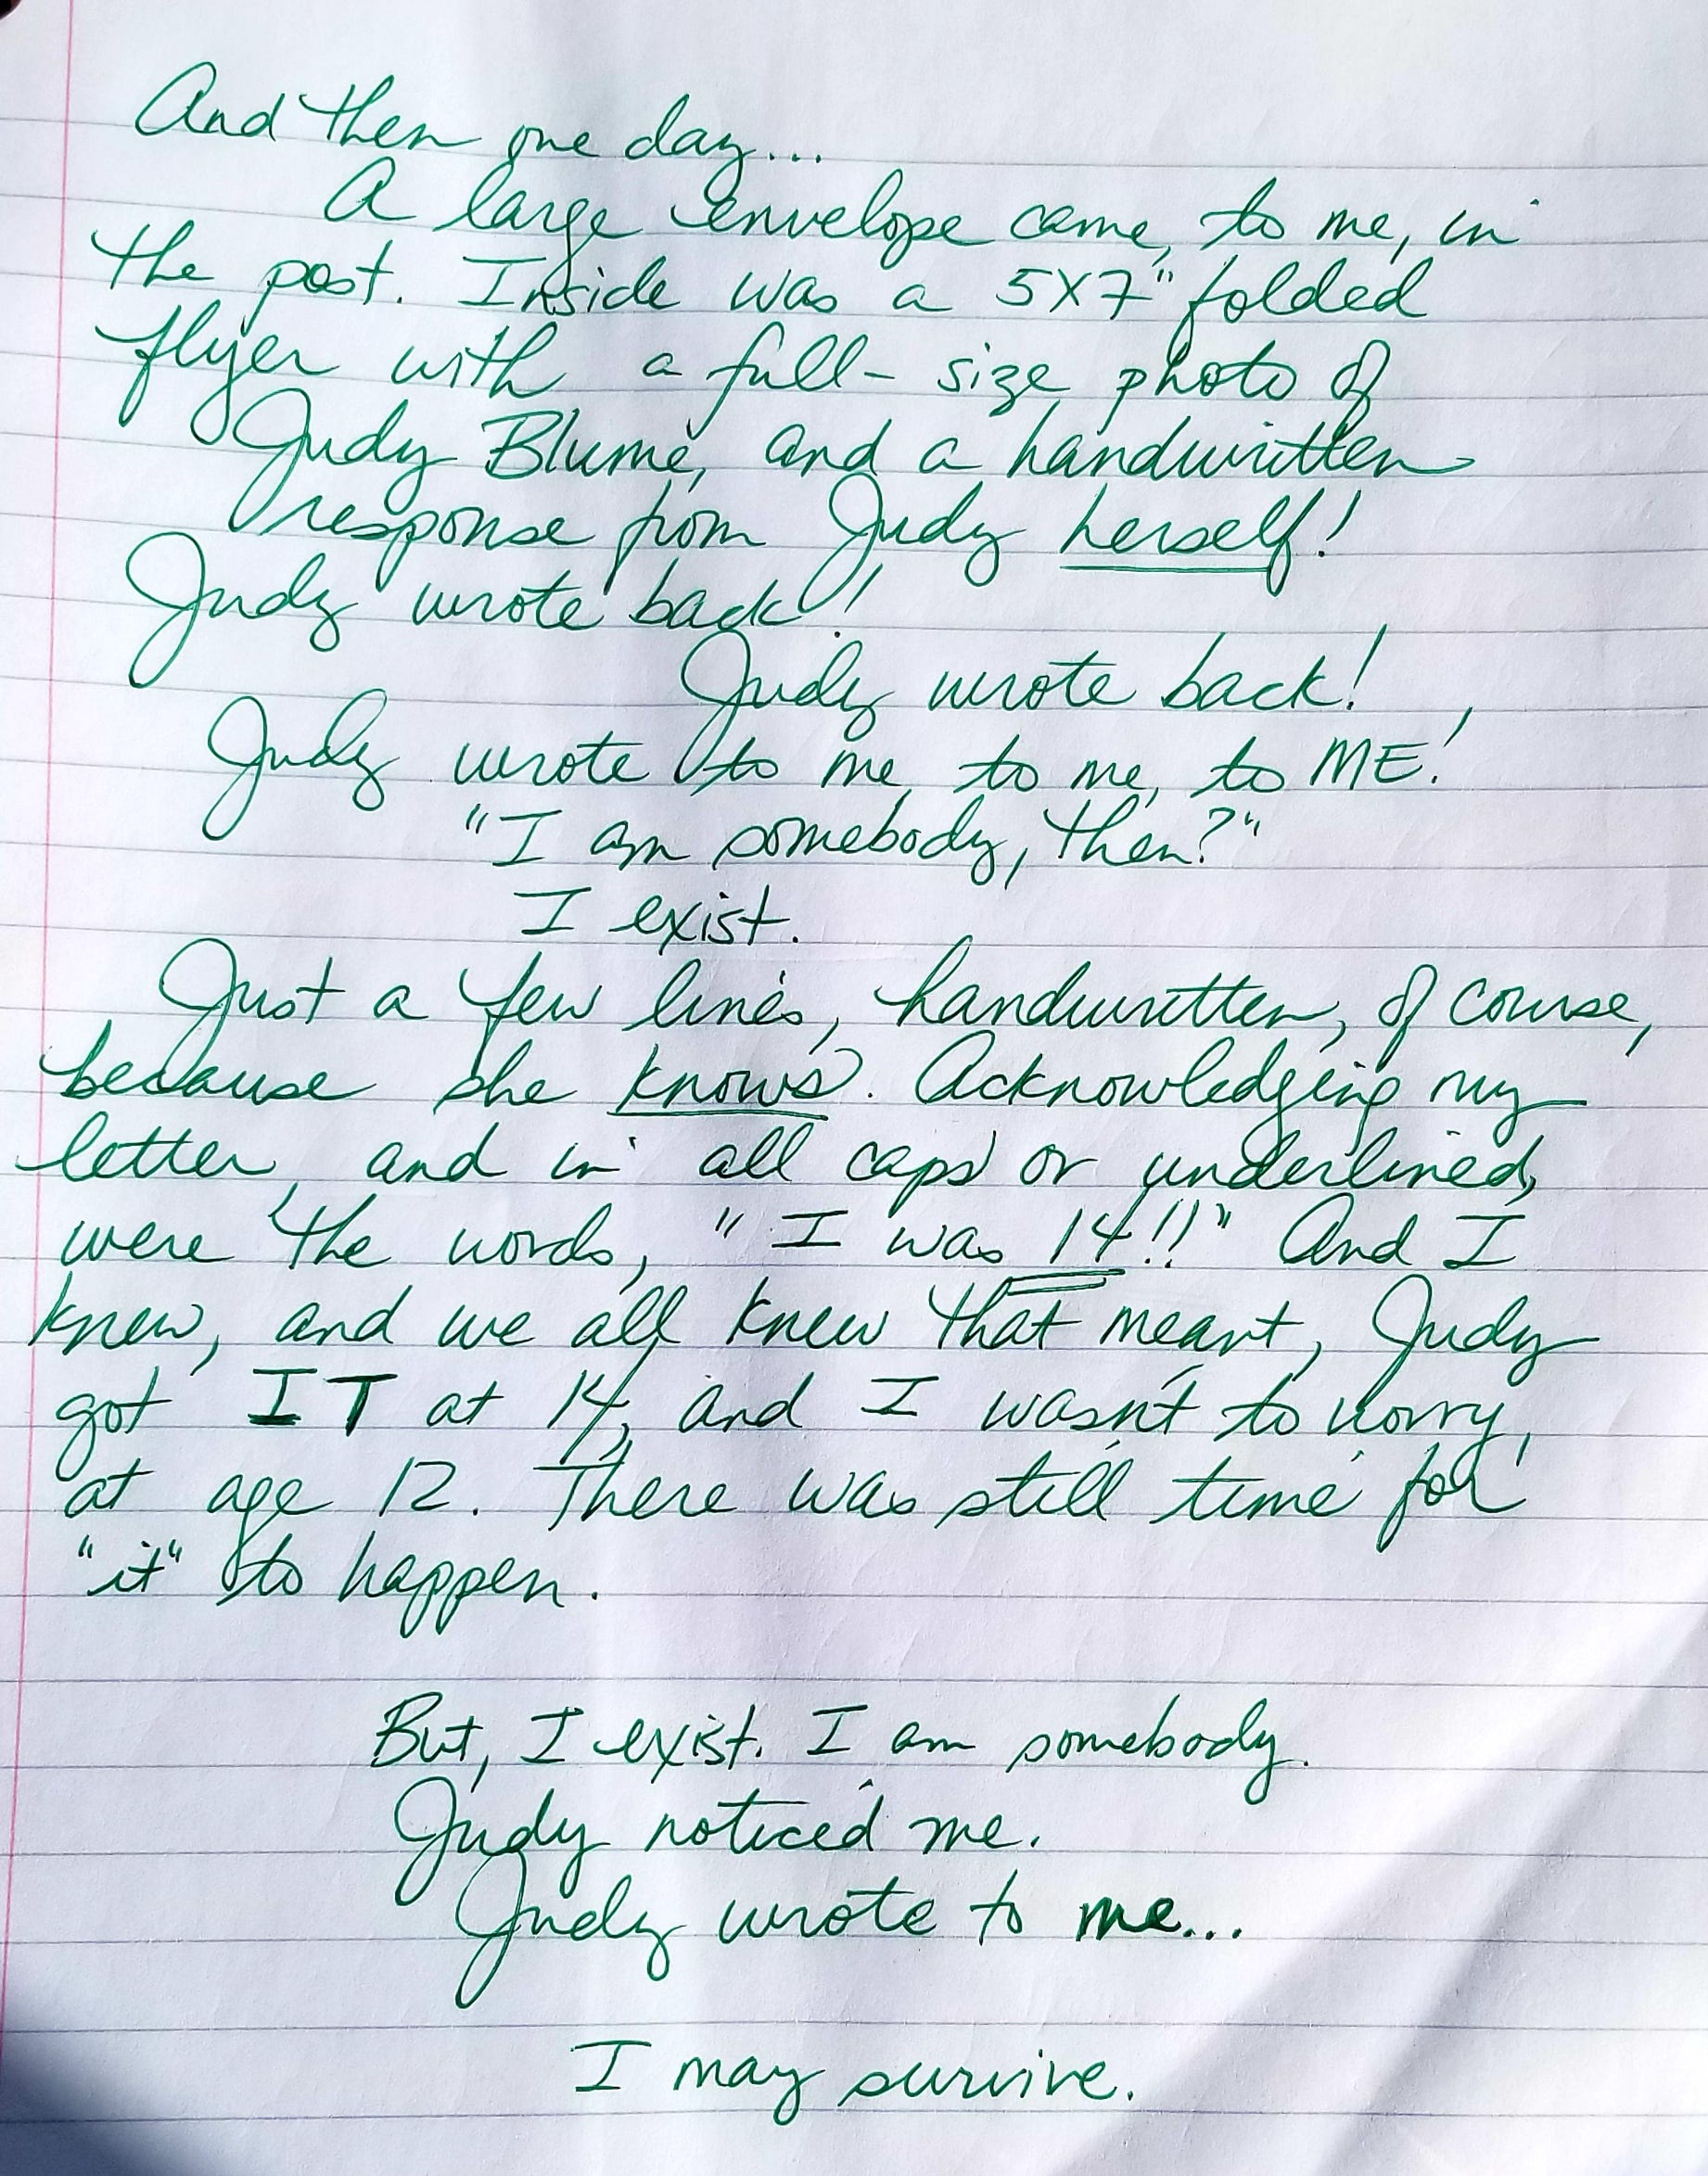 And then one day...
A large envelope came, to me, in
the post. Inside was a 5X7" folded
flyer with a full-size photo of
Judy Blume, and a handwritten
response from Judy herself!
Judy wrote back!
Judy wrote back!
Judy wrote to me, to me, to ME!
"I am somebody, then?"
I exist.
Just a few lines, handwritten, of course,
because she knows. Acknowledging my
letter, and in all caps or underlined,
were the words, "I was 14!!" And I
knew, and we all knew that meant, Judy
got IT at 14, and I wasn't to worry,
at age 12. There was still time for
"it" to happen.
But, I exist. I am somebody.
Judy noticed me.
Judy wrote to me...
I may survive.